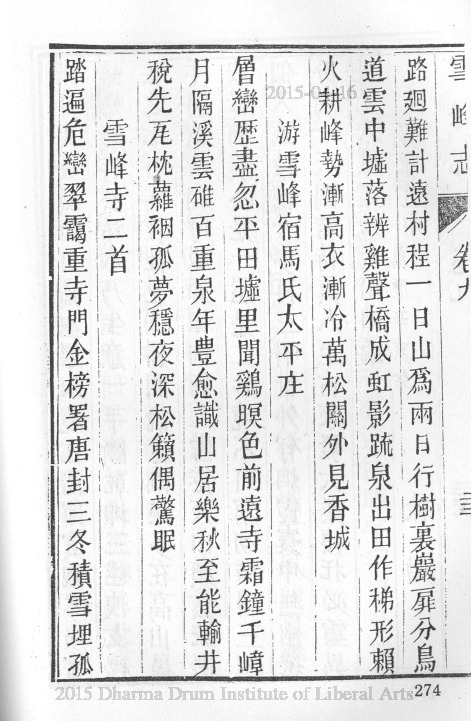 雪峰志 卷九
路廻難計遠村程一日山爲兩日行樹裏巖扉分鳥
道雲中墟落辨雞聲橋成虹影䟽泉出田作梯形賴
火耕峰勢漸高衣漸冷萬松關外見香城
游雪峰宿馬氏太平庄
層巒歷盡忽平田墟里聞鷄暝色前遠寺霜鐘千嶂
月隔溪雲碓百重泉年豊愈識山居樂秋至能輸井
稅先瓦枕蘿裀孤夢穩夜深松籟偶驚眠
雪峰寺二首
踏遍危巒翠靄重寺門金榜署唐封三冬積雪埋孤
274
2015 Dharma Drum Institute of Liberal Arts